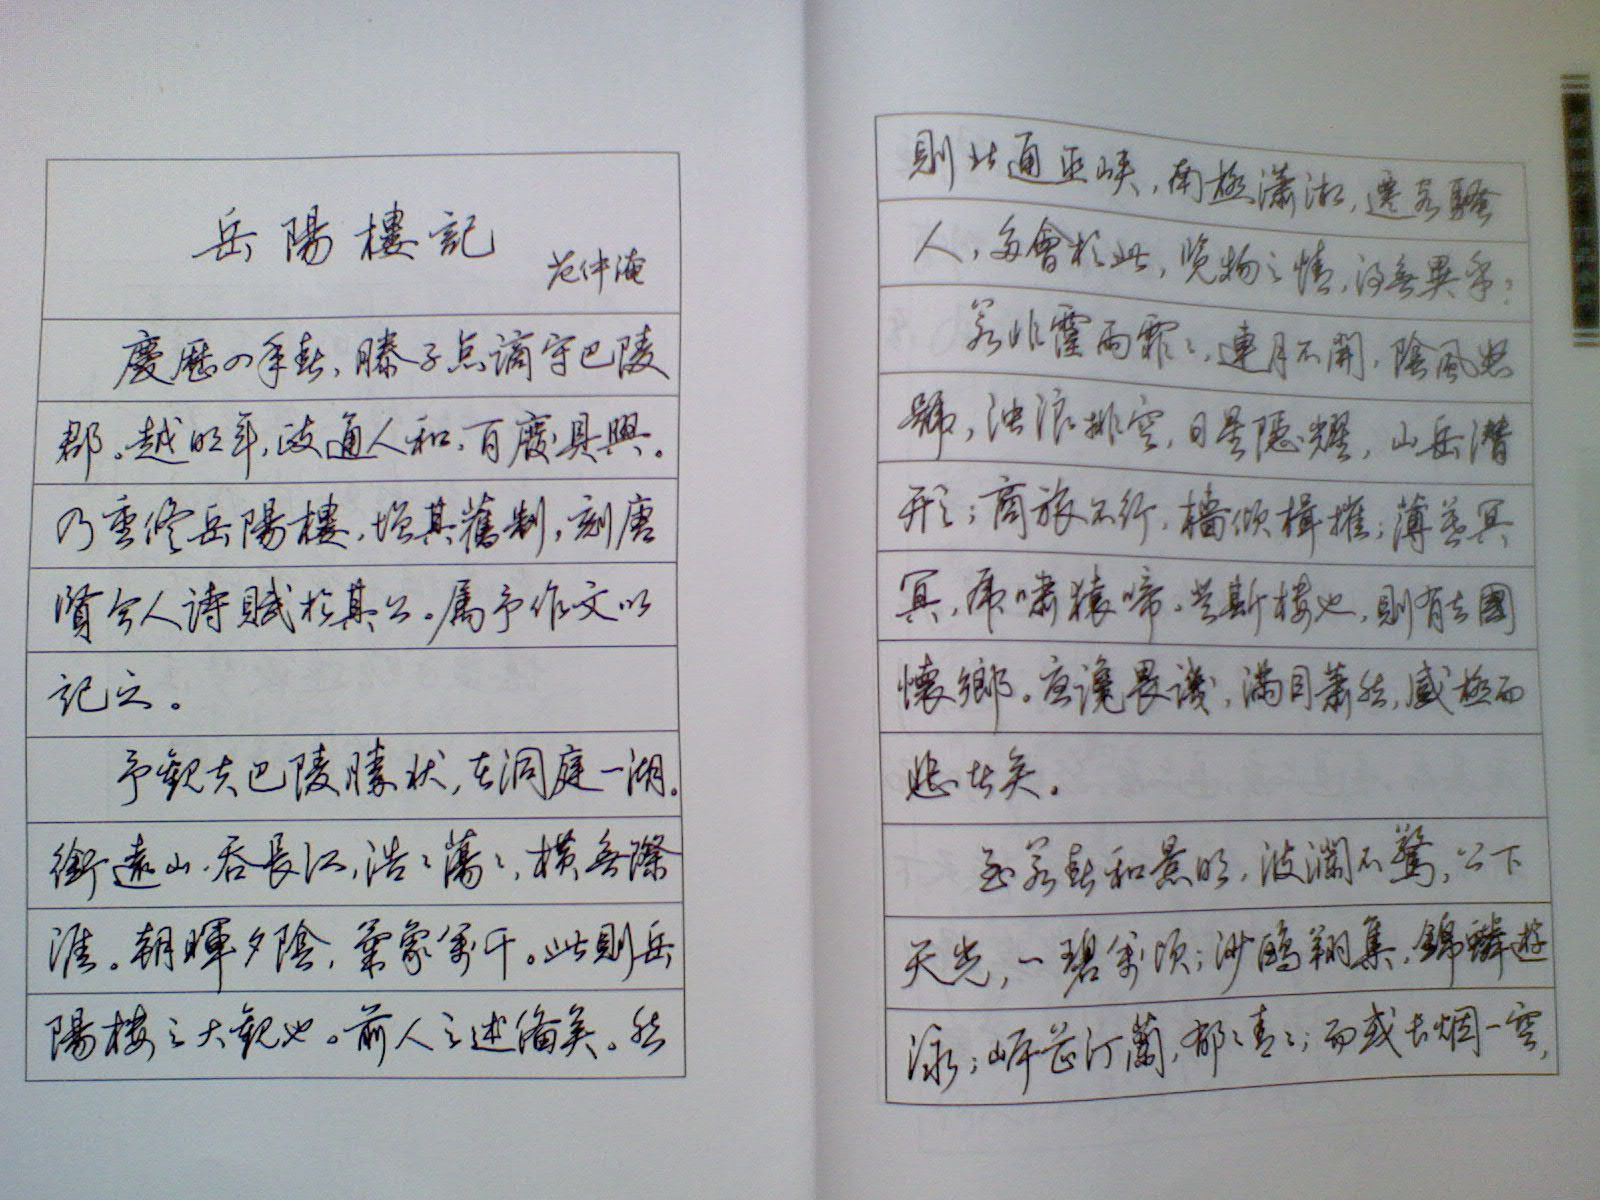 岳陽樓記
范仲淹
慶歷四年春,滕子京謫守巴陵
郡。越明年,政通人和,百廢具興。
乃重修岳陽樓,增其舊制,刻唐
賢今人詩賦於其上。屬予作文以
記之。
予觀夫巴陵勝狀,在洞庭一湖。
銜遠山,吞長江,浩〻蕩〻,橫無際
涯。朝暉夕陰,氣象萬千。此則岳
陽樓之大觀也。前人之述備矣。然
則北通巫峽,南極瀟湘,遷客騷
人,多會於此,覽物之情,得無異乎?
若非霪雨霏〻,連月不開,陰風怒
號,浊浪排空,日星隱耀,山岳潛
形;商旅不行,檣傾楫摧;薄暮冥
冥,虎嘯猿啼。登斯樓也,則有去國
懷鄉。憂讒畏譏,滿目蕭然,感極而
悲者矣。
至若春和景明,波瀾不驚,上下
天光,一碧萬頃;沙鷗翔集,錦鱗遊
泳;岸芷汀蘭,郁〻青〻;而或長烟一空,